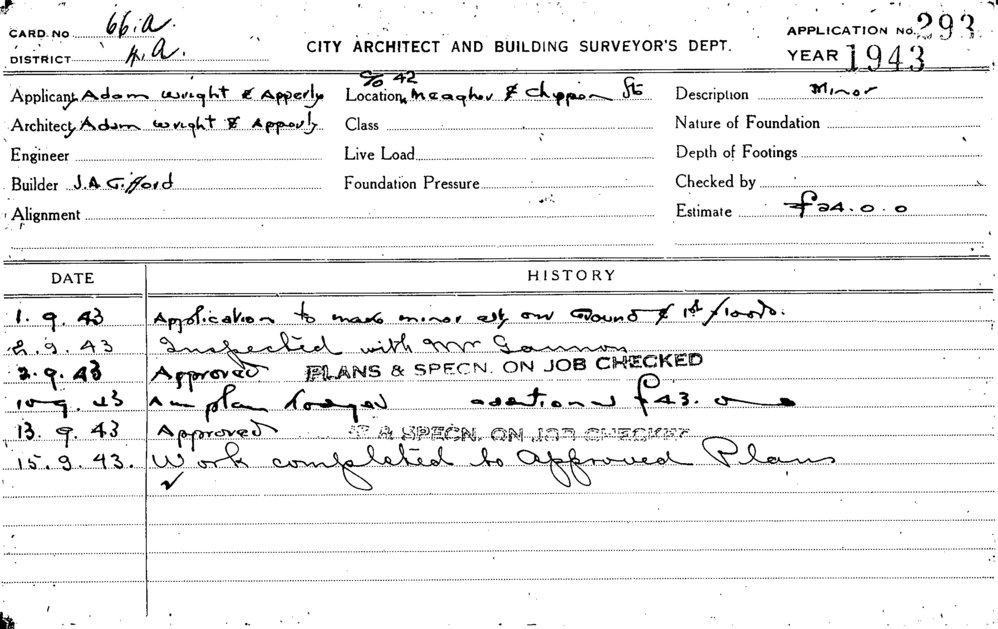 CARD. NO 66.a.
DISTRICT
CITY ARCHITECT AND BUILDING SURVEYOR'S DEPT.
APPLICATION NO. 293
YEAR 1943
Applicant Adam Wright & Apperly
Architect Adam Wright & Apperly
Engineer
Builder J.A Gifford
Alignment
42
Location Meagher & Chippen Sts
Class
Live Load
Foundation Pressure
Description Minor
Nature of Foundation
Depth of Footings
Checked by
Estimate £24.0.0
DATE HISTORY
1.9.43 Application to make minor alts on Ground & 1st floors.
2.9.43 Inspected with Mr Gannon
2.9.43 Approved PLANS & SPECN. ON JOB CHECKED
10.9.43 Am plan lodged additional £43.
13.9.43 Approved & SPECN. ON JOB CHECKED
15.9.43. Work completed to Approved Plans
✓